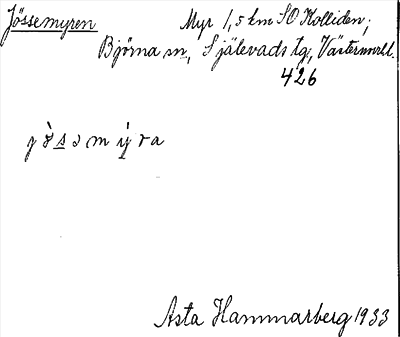 Jössemyren Myr 1,5 km SO Kolliden,
Björna sn, Själevads tg, Västernorrl.
426
j ö̀ s ɔ m ý r a
Asta Hammarberg 1933